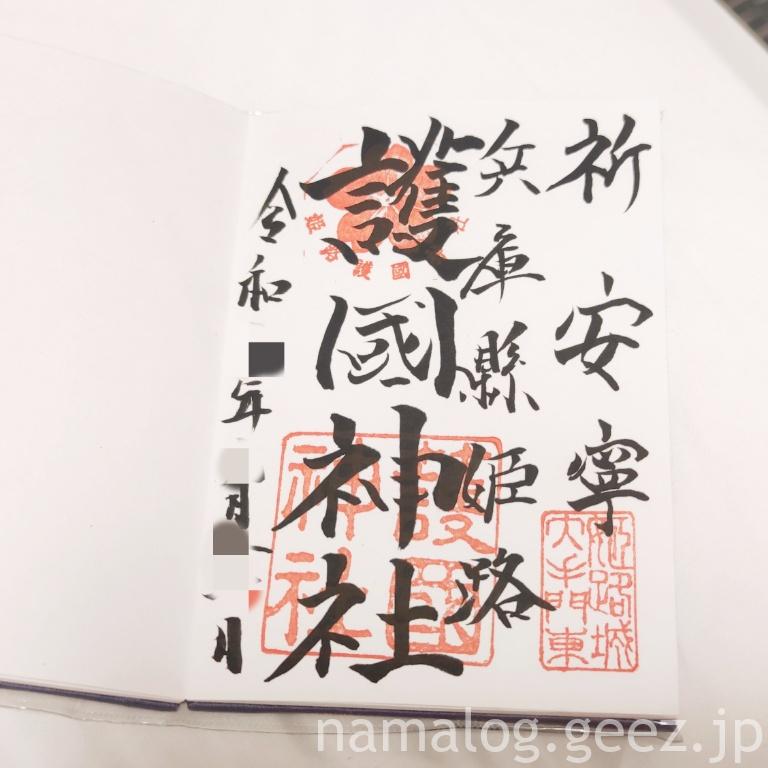 祈安寧
兵庫縣姫路
護國神社
令和 年 月 日
姫路護國
護國神社
姫路城大手門東
namalog.geez.jp